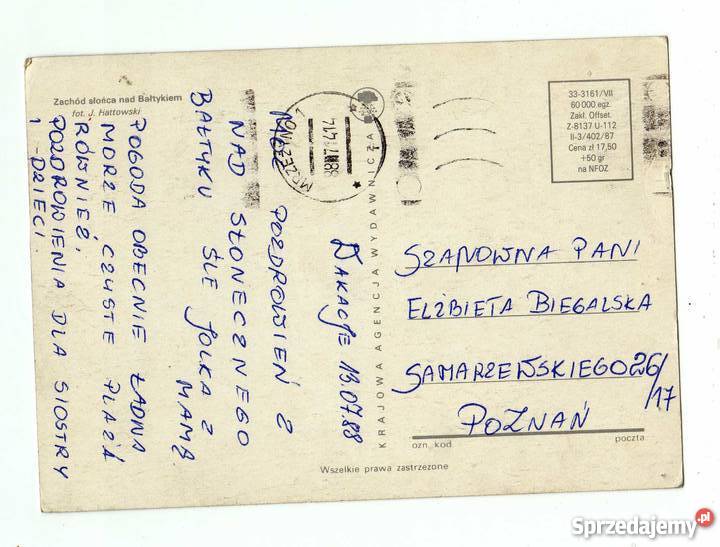 Zachód słońca nad Bałtykiem
fot. J. Hattowski
WAKACJE 13.07.88
POZDROWIEŃ Z
NAD SŁONECZNEGO
BAŁTYKU ŚLE JOLKA Z
MAMĄ.
POGODA OBECNIE ŁADNA
MORZE CZYSTE PLAŻA
RÓWNIEŻ,
POZDROWIENIA DLA SIOSTRY
I DZIECI.
MRZEŻYNO 1
KRAJOWA AGENCJA WYDAWNICZA
33-3161/VII
60 000 egz.
Zakł. Offset.
Z-8137 U-112
II-3/402/87
Cena zł 17,50
+50 gr
na NFOZ
SZANOWNA PANI
ELŻBIETA BIEGALSKA
SAMARZEWSKIEGO 26/17
POZNAŃ
ozn. kod
poczta
Wszelkie prawa zastrzeżone
Sprzedajemy.pl